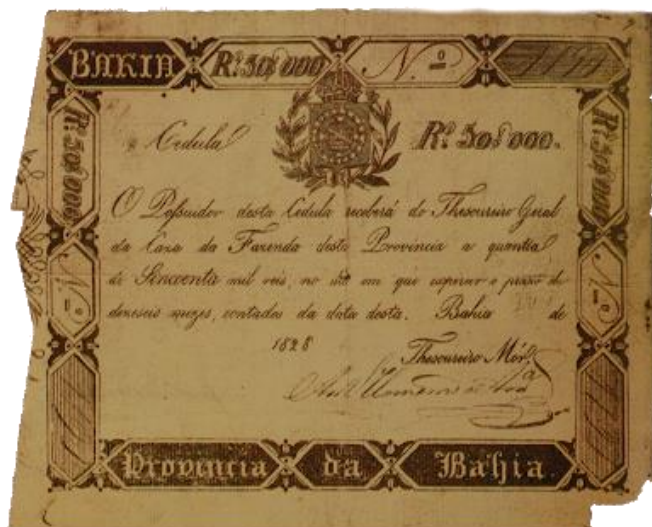 BAHIA Rs. 50$000 N.º
Cedula Rs. 50$000.
Rs. 50$000
Rs. 50$000
O Possuidor desta Cedula receberá do Thesoureiro Geral
da Caza da Fazenda desta Provincia a quantia
de Sincoenta mil reis, no dia em que expirar o prazo de
dezeseis mezes, contados da data desta. Bahia de
1828
Thesoureiro Mór,
N.º
N.º
Provincia da Bahia.